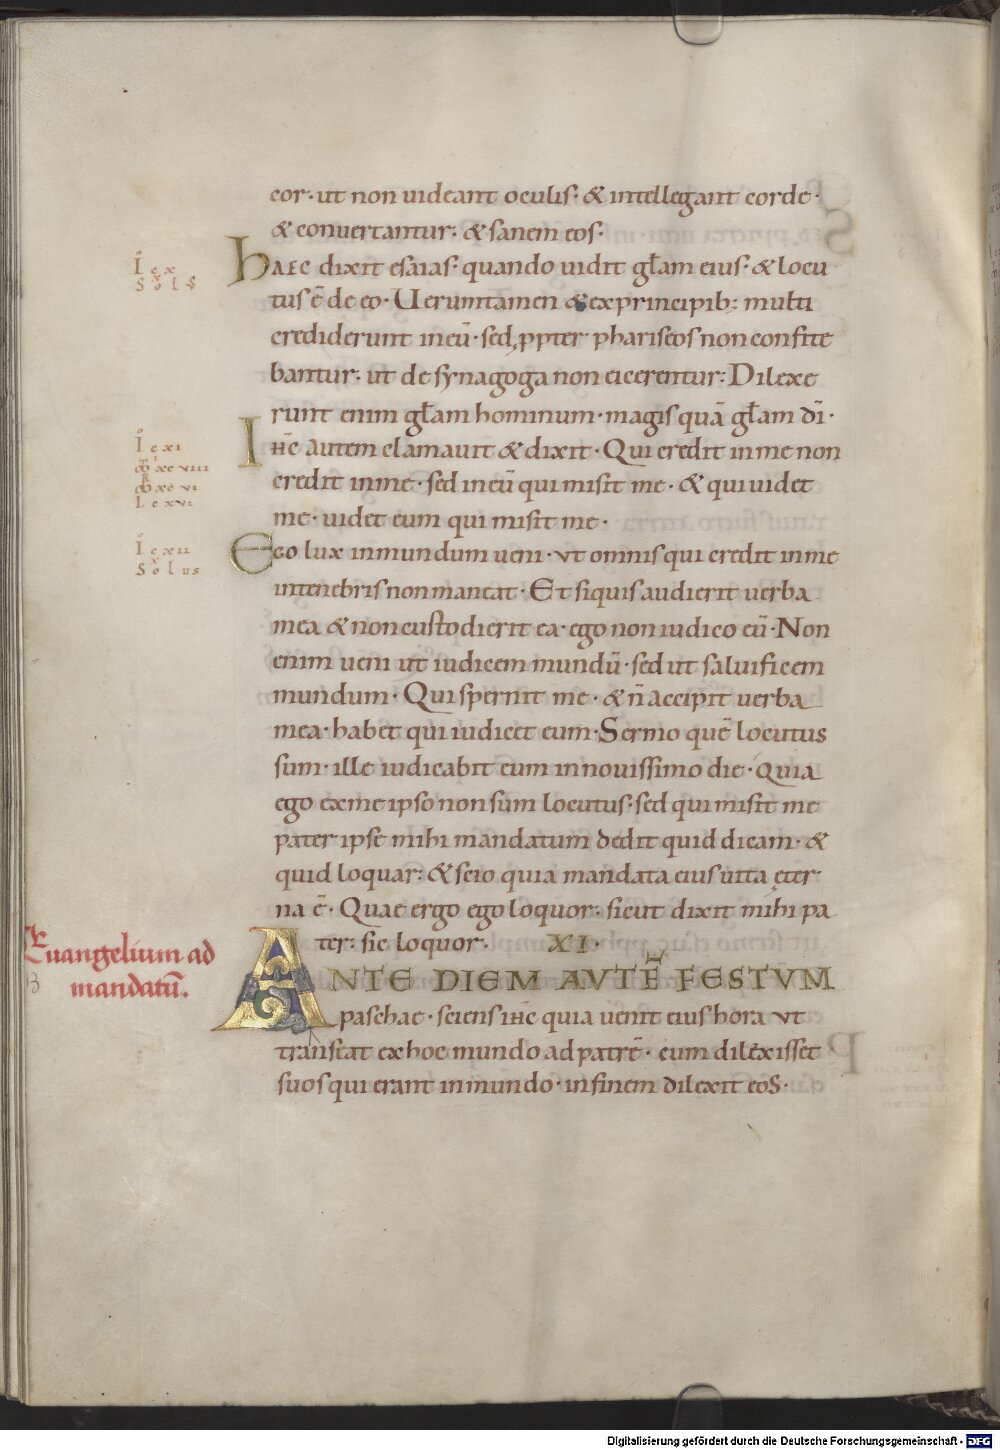 cor· ut non uideant oculis· & intellegant corde·
& conuertantur· & sanem eos·
hAEC dixit esaias· quando uidit gl̄am eius· & locu
tus ē de eo· Uerumtamen & ex principib; multi
crediderunt in eū· sed ꝓpter phariseos non confite
bantur· ut de synagoga non eicerentur· Dilexe
runt enim gl̄am hominum· magis quā gl̄am dī·
IHC̄ autem clamauit & dixit· Qui credit in me non
credit in me· sed in eū qui misit me· & qui uidet
me· uidet eum qui misit me·
EGO lux in mundum ueni· ut omnis qui credit in me
in tenebris non maneat· Et siquis audierit uerba
mea & non custodierit ea· ego non iudico eū· Non
enim ueni ut iudicem mundū· sed ut saluificem
mundum· Qui spernit me· & n̄ accipit uerba
mea· habet qui iudicet eum· Sermo quē locutus
sum· ille iudicabit eum in nouissimo die· Quia
ego ex me ipso non sum locutus· sed qui misit me
pater ipse mihi mandatum dedit quid dicam· &
quid loquar· & scio quia mandata eius uita ęter
na ē· Quae ergo ego loquor· sicut dixit mihi pa
ter· sic loquor· XI·
ANTE DIEM AVTĒ FESTVM
paschae· sciens ihc̄ quia uenit eius hora ut
transeat ex hoc mundo ad patrē· cum dilexisset
suos qui erant in mundo· in finem dilexit eos·
I c x
S o l S
I c xi
M xc viii
M xc vi
L c xvi
I c xii
S o l us
Euangelium ad
mandatū.
Digitalisierung gefördert durch die Deutsche Forschungsgemeinschaft - DFG